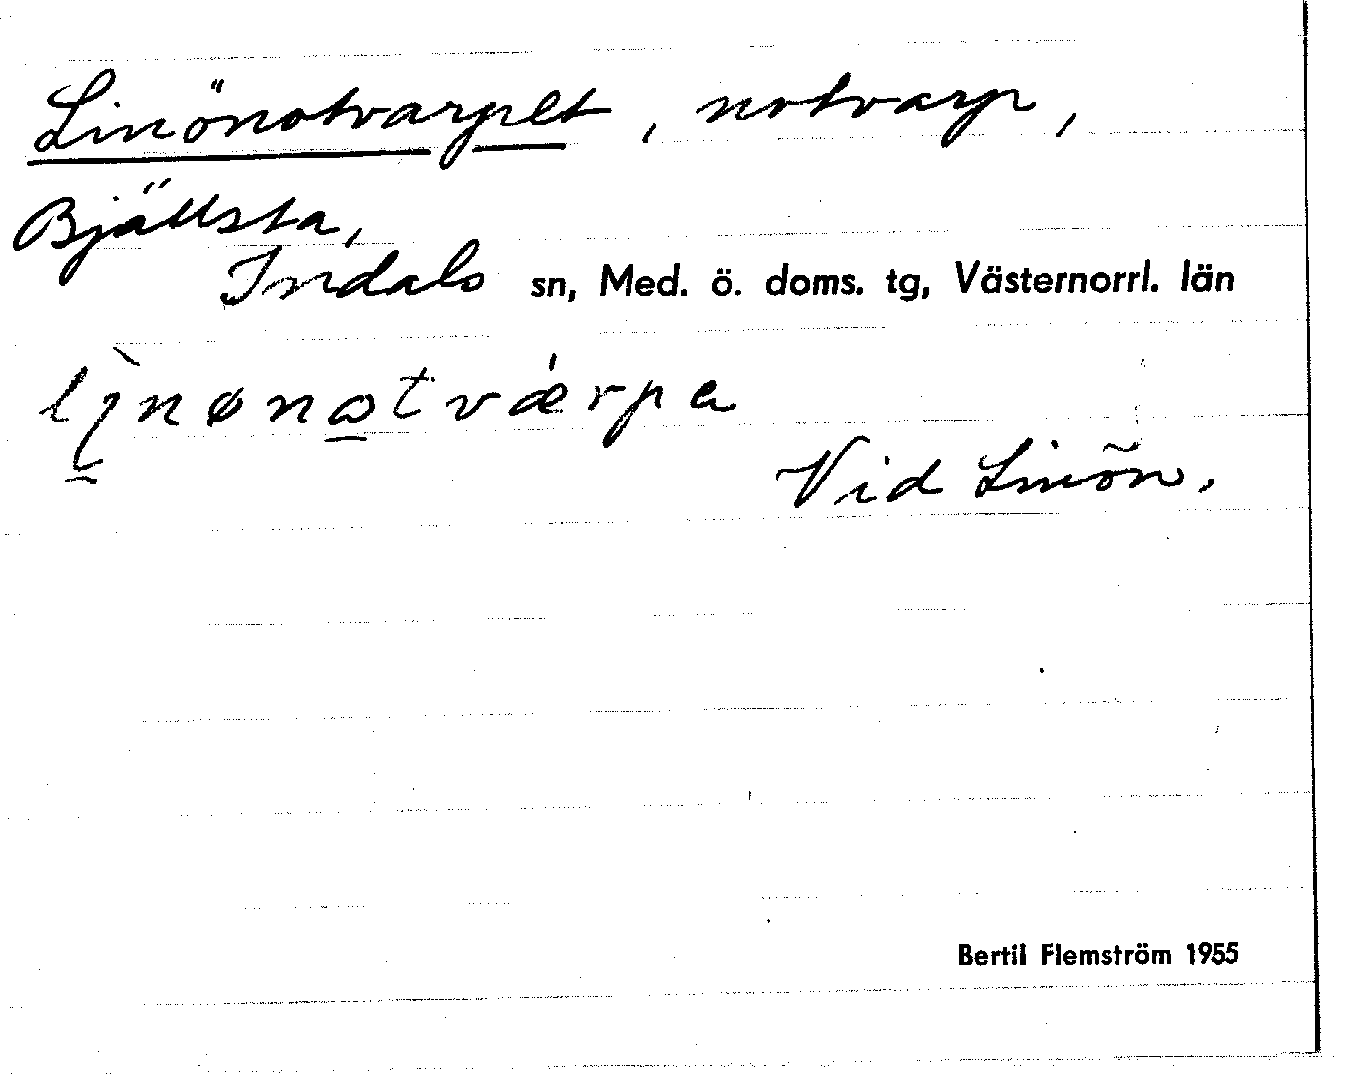 Linönotvarpet, notvarp,
Bjällsta,
Indals sn, Med. ö. doms. tg, Västernorrl. län
lı̀nønωtvǽrpa
Vid Linön.
Bertil Flemström 1955